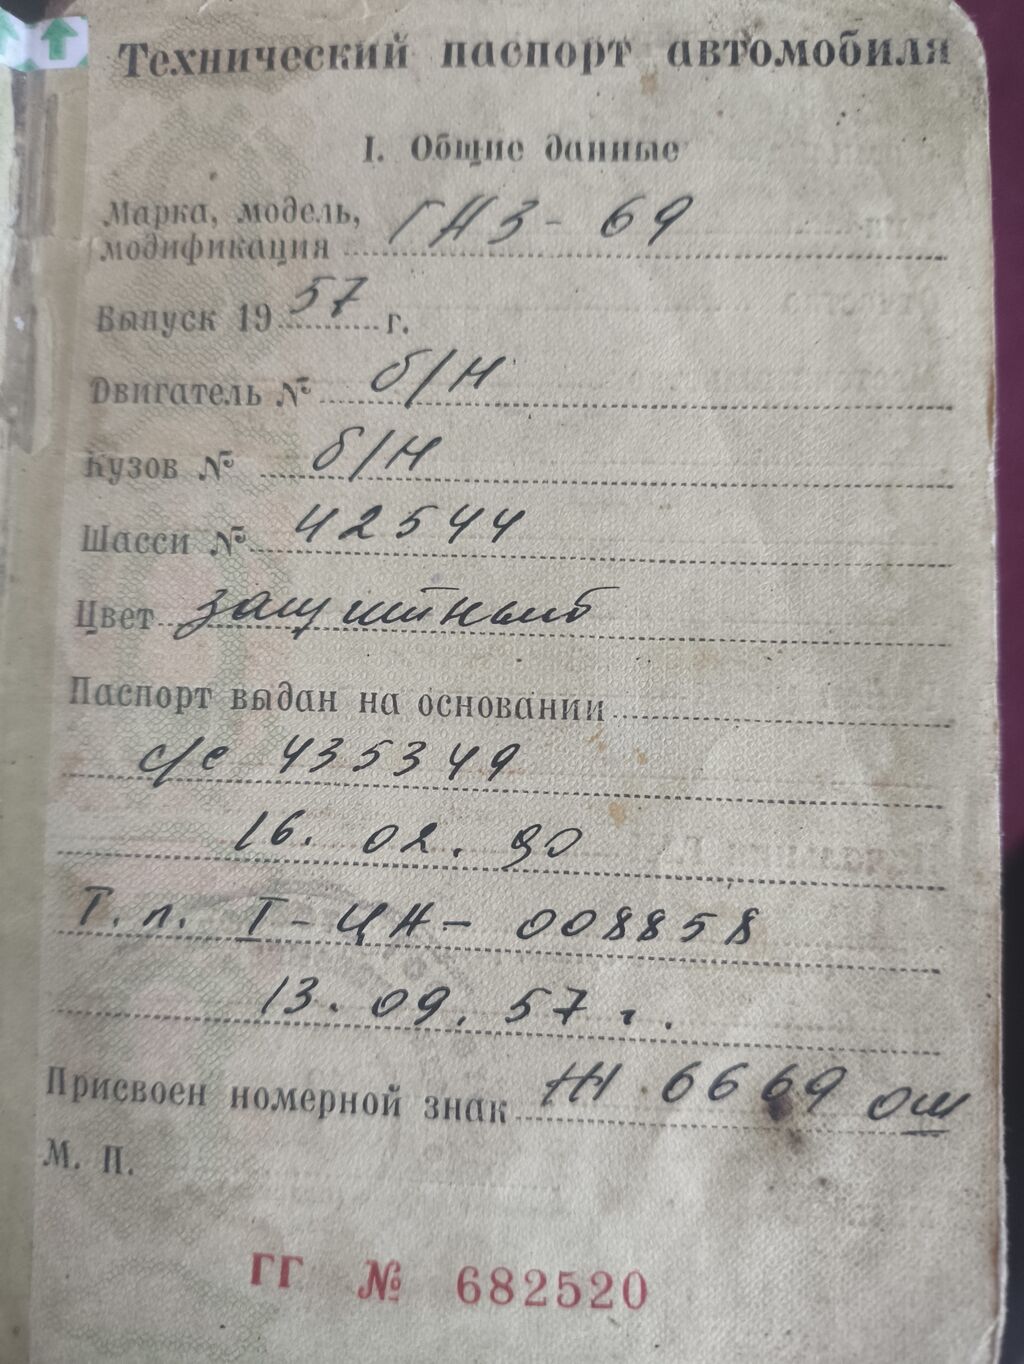 Технический паспорт автомобиля
I. Общие данные
Марка, модель,
модификация ГАЗ-69
Выпуск 19 57 г.
Двигатель № б/н
Кузов № б/н
Шасси № 42544
Цвет защитный
Паспорт выдан на основании
с/с 435349
16. 02. 90
Т. п. I-ЦН- 008858
13. 09. 57 г.
Присвоен номерной знак Ж 6669 ОШ
М. П.
ГГ № 682520